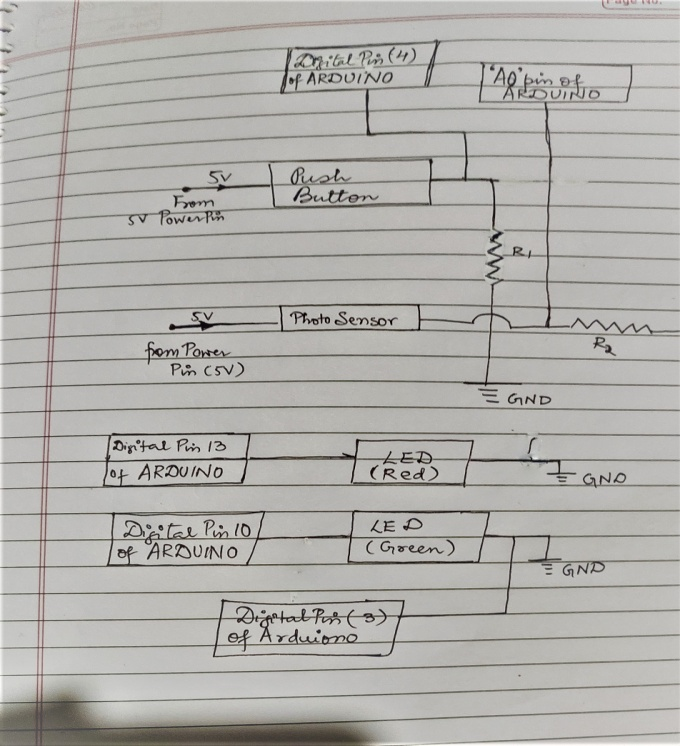 Page No.
Digital Pin (4)
of ARDUINO
'A0' pin of
ARDUINO
5V
From
5V PowerPin
Push
Button
R1
5V
from Power
Pin (5V)
Photo Sensor
R2
GND
Digital Pin 13
of ARDUINO
LED
(Red)
GND
Digital Pin 10
of ARDUINO
LED
(Green)
GND
Digital Pin (3)
of Arduiono